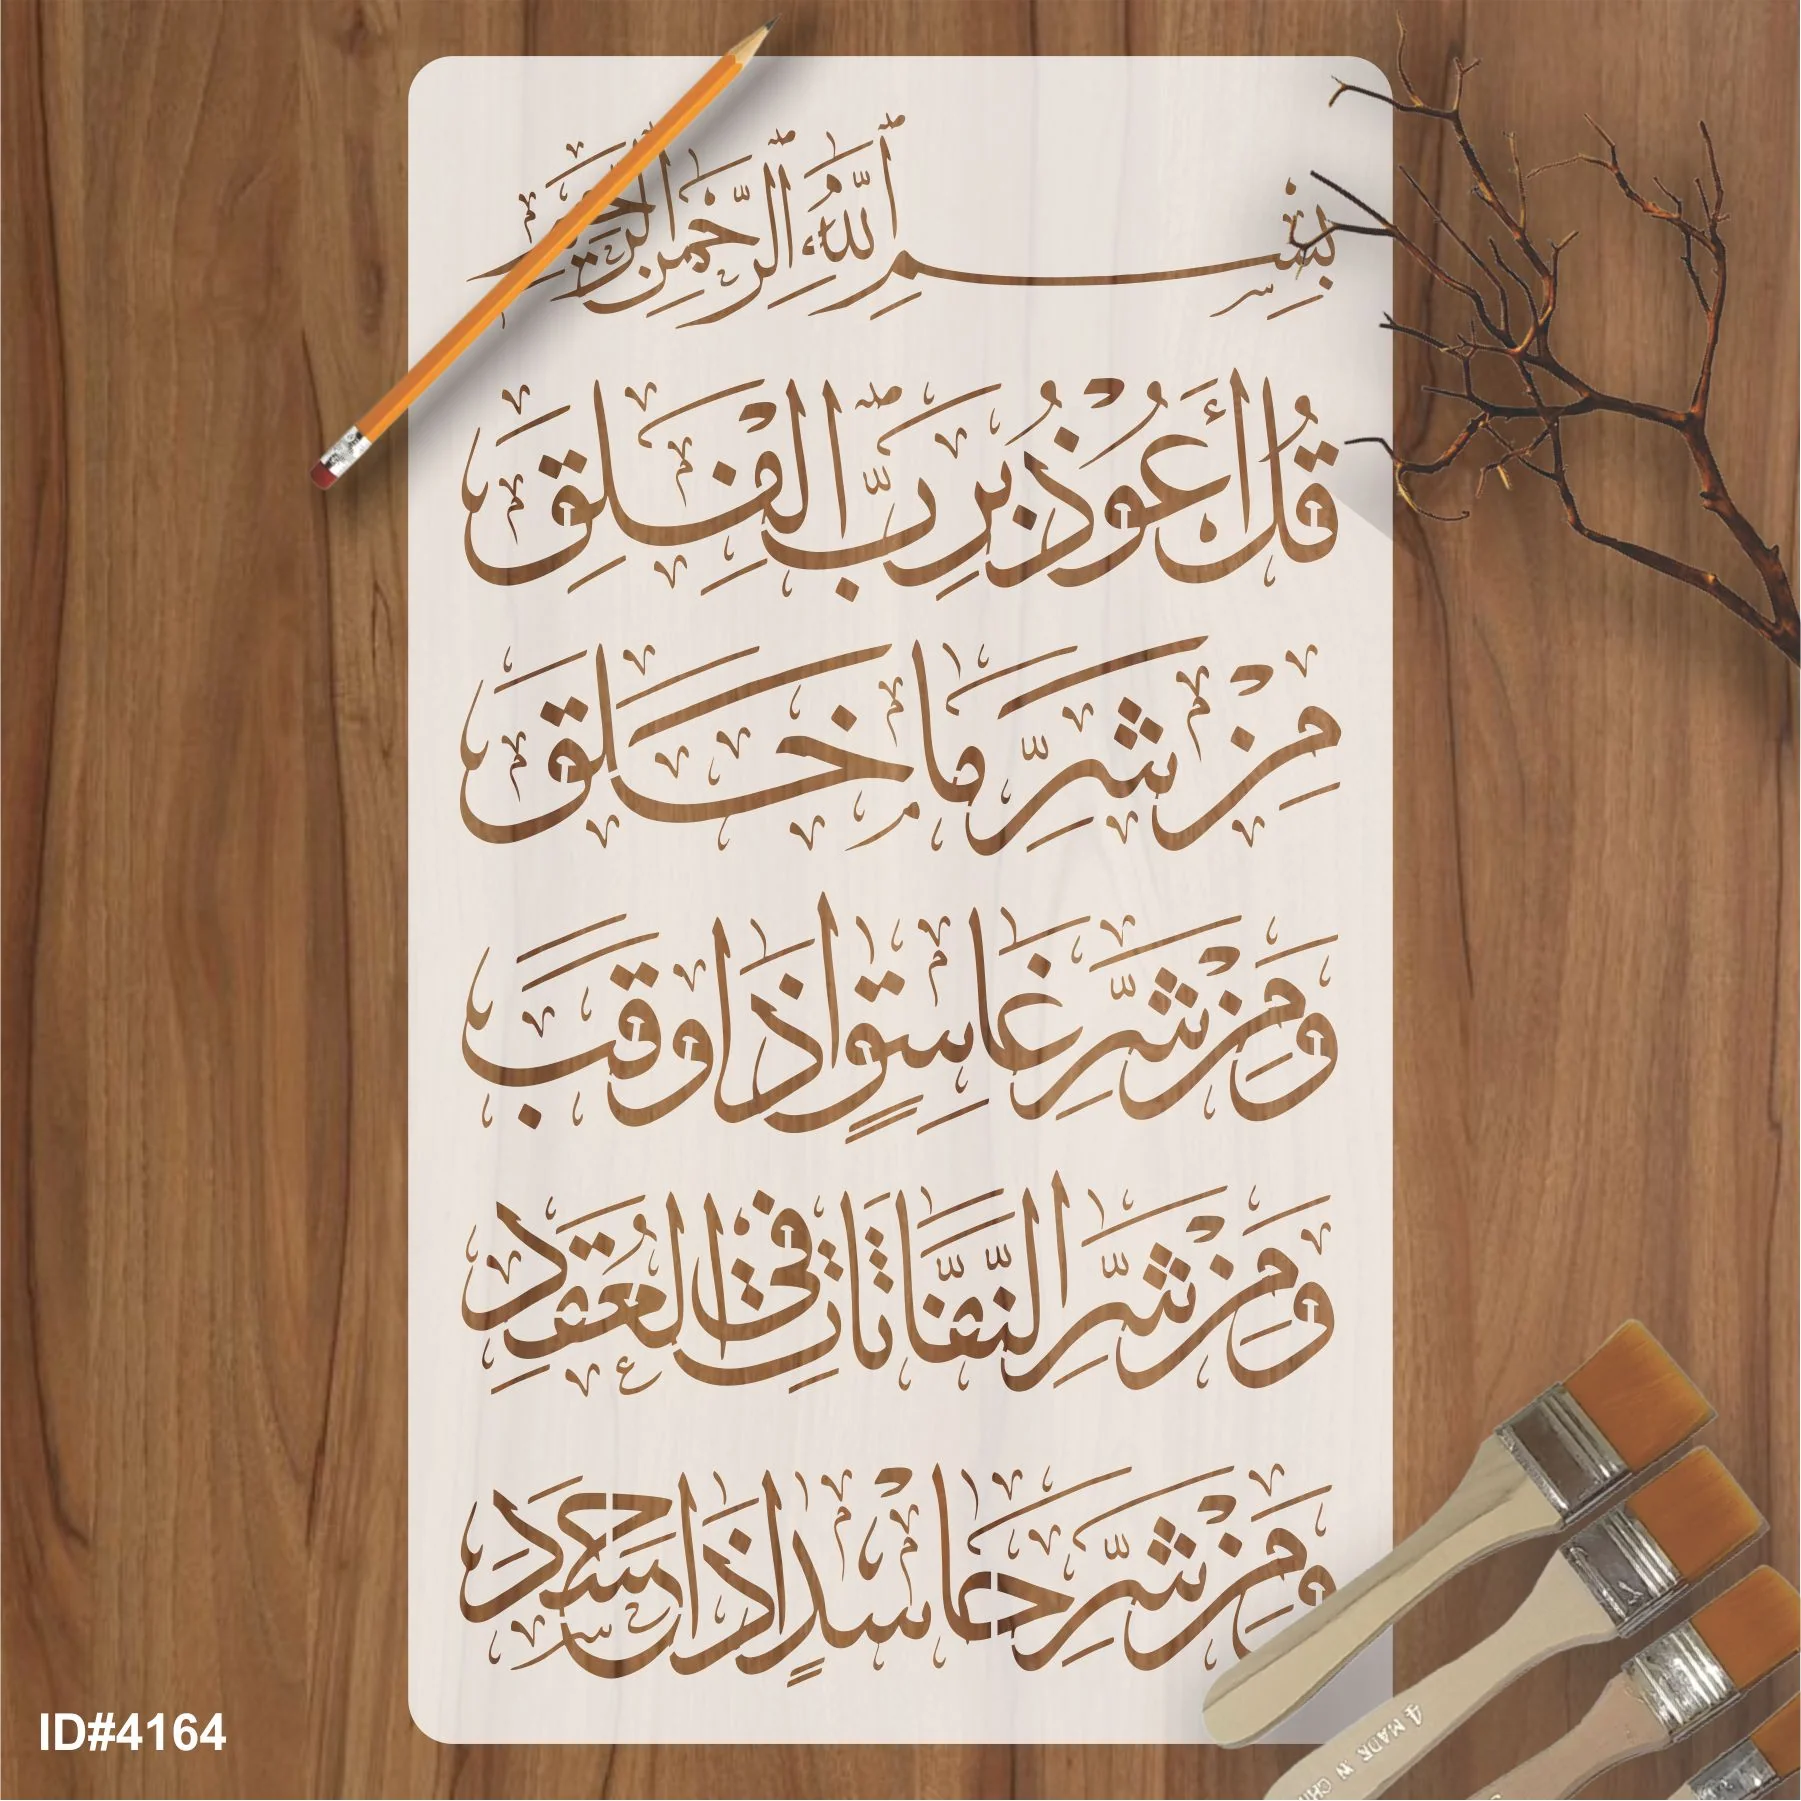 بِسْمِ ٱللَّهِ ٱلرَّحْمَٰنِ ٱلرَّحِيمِ
قُلْ أَعُوْذُ بِرَبِّ الْفَلَقِ
مِنْ شَرِّ مَا خَلَقَ
وَمِنْ شَرِّ غَاسِقٍ إِذَا وَقَبَ
وَمِنْ شَرِّ النَّفَّاثَاتِ فِي الْعُقَدِ
وَمِنْ شَرِّ حَاسِدٍ إِذَا حَسَدَ
ID#4164
4 MADE IN CHI